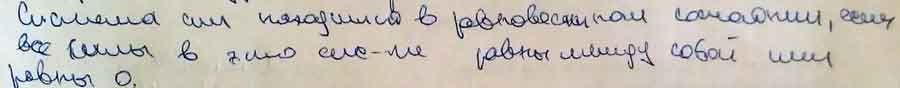 Система сил находится в равновесном состоянии, если
все силы в этой сис-ме равны между собой или
равны 0.